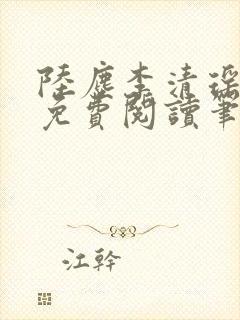 陸塵李清瑤
免費閱讀筆
江幹